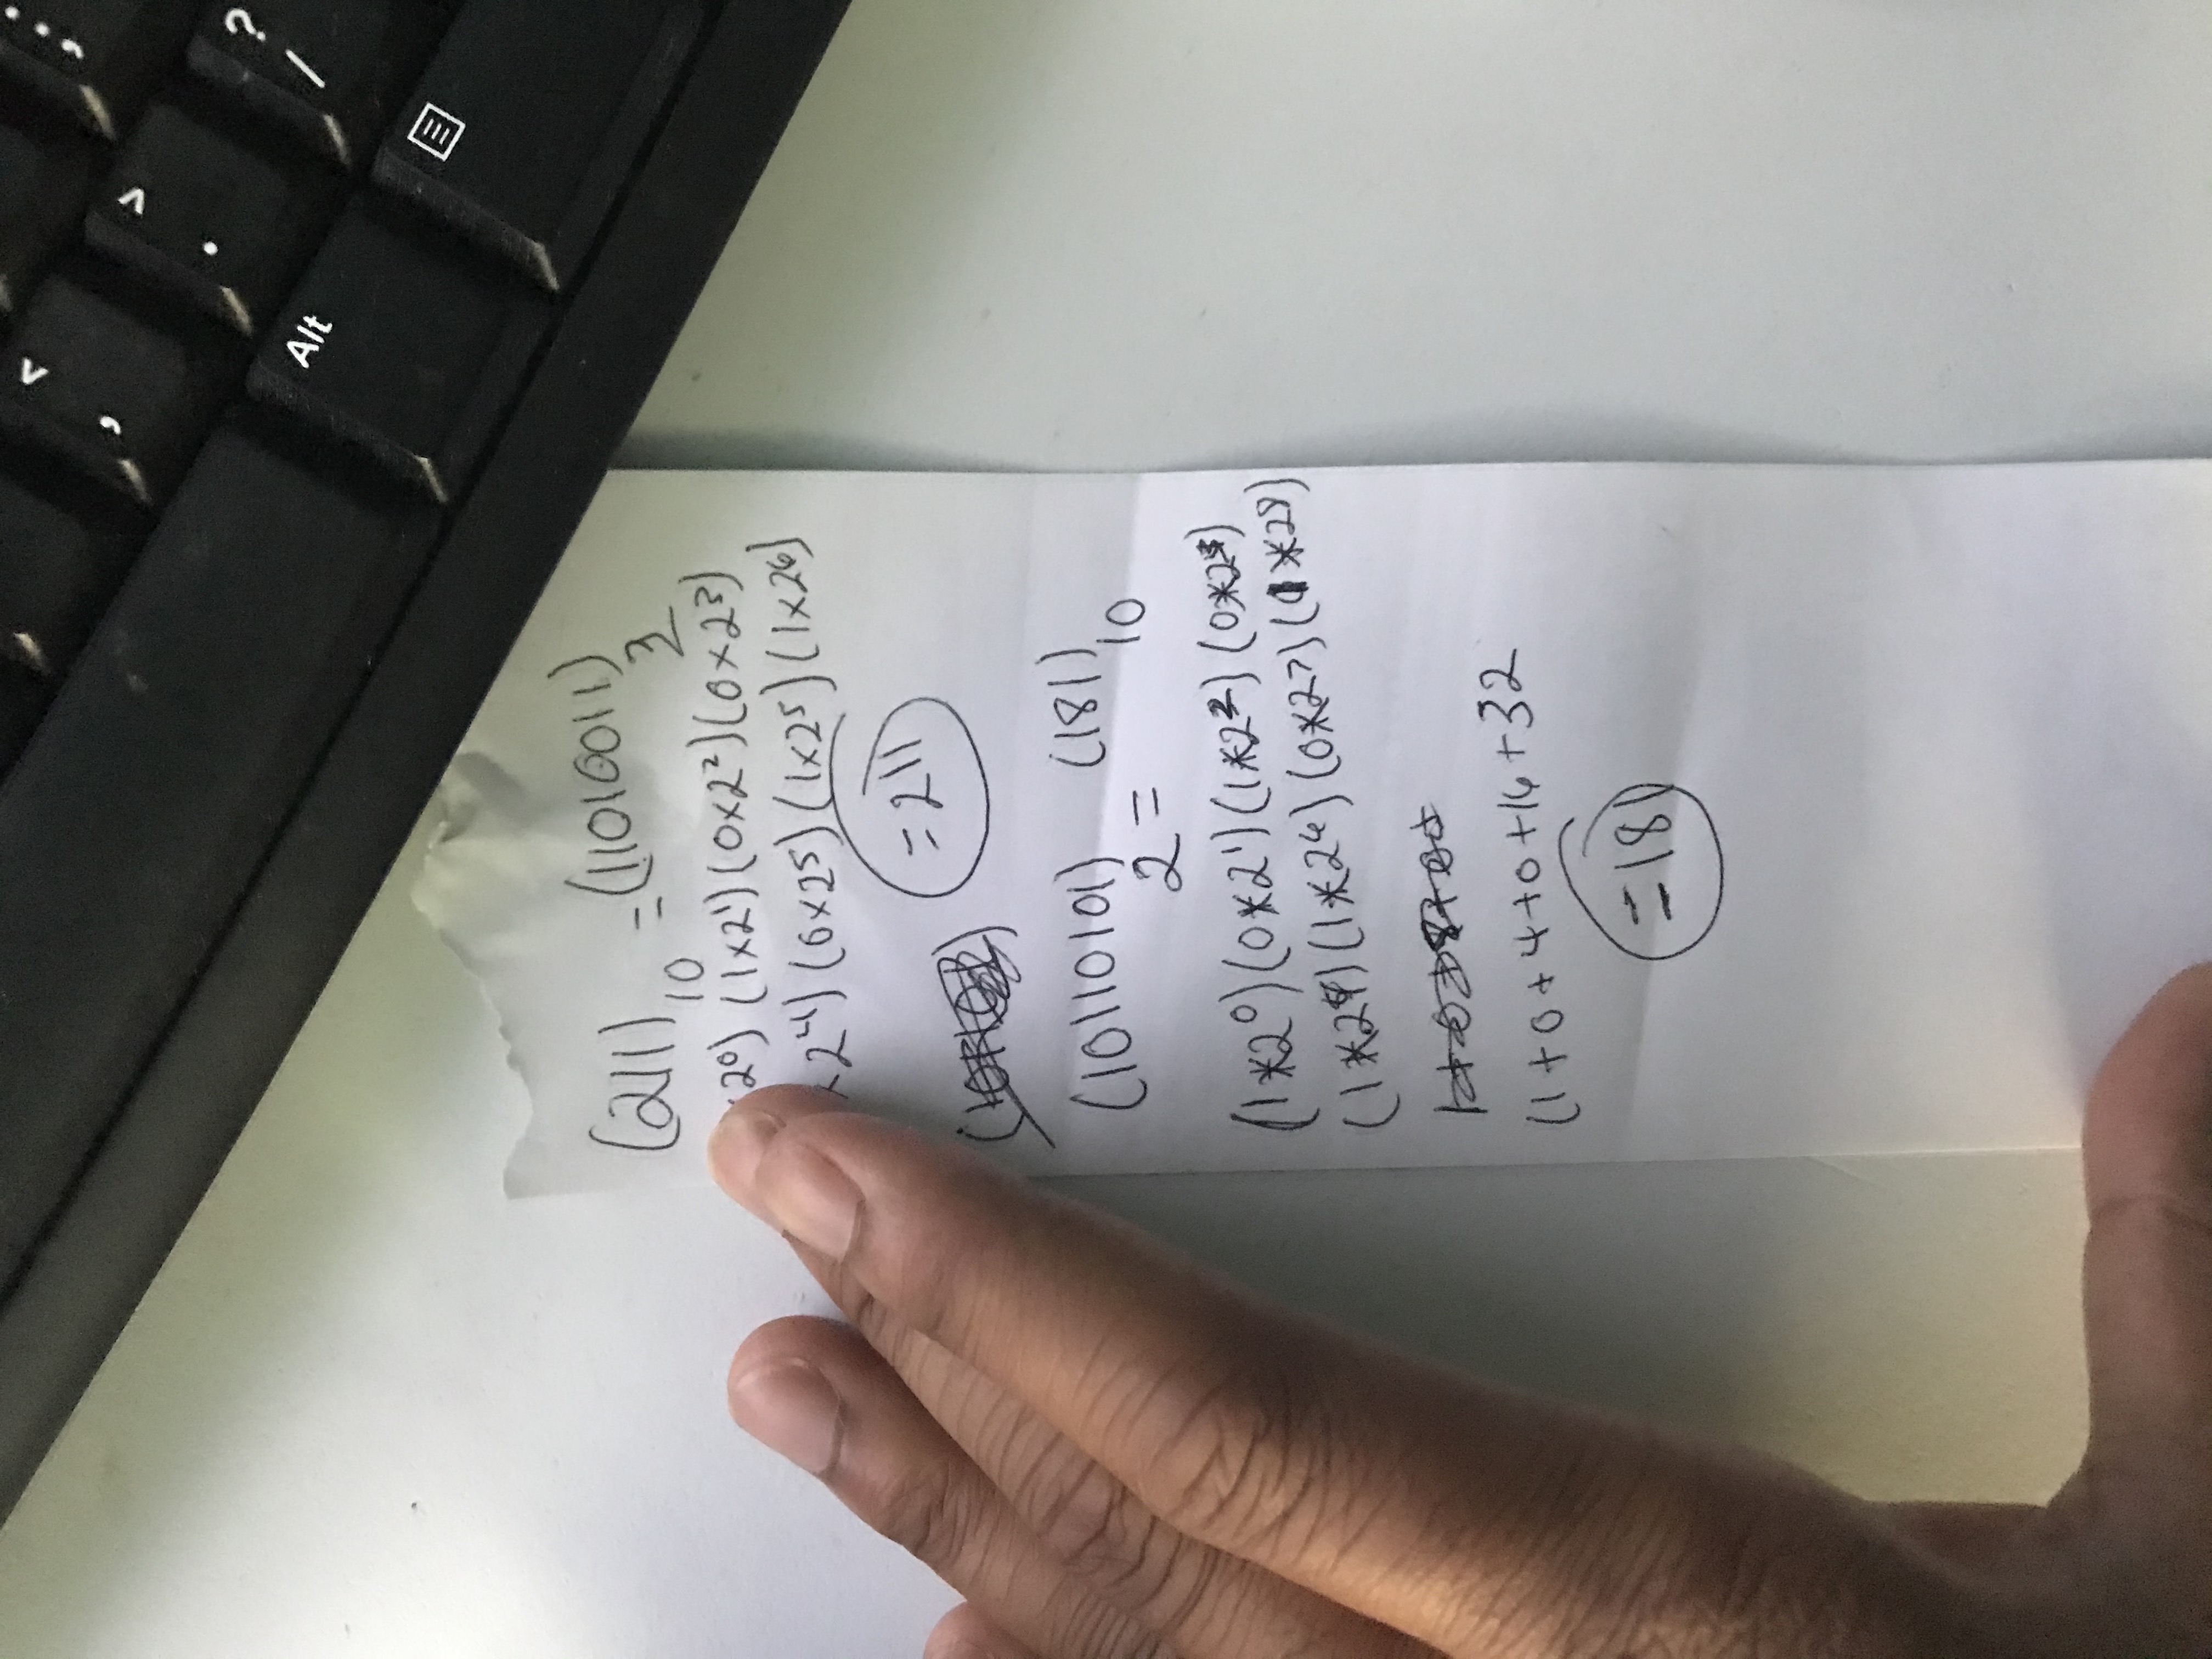 (211)10 = (11010011)2
×2⁰) (1×2¹) (0×2²) (0×2³)
×2⁴) (0×25) (1×25) (1×26)
= 211
(10110101)2 = (181)10
(1*2⁰) (0*2¹) (1*2²) (0*2³)
(1*2⁴) (1*24) (0*27) (1*28)
(1+0+4+0+16+32
=181
? /
> .
< ,
Alt